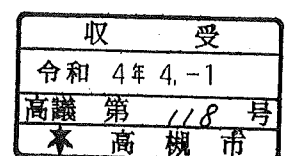 収 受
令和 4年 4.-1
高議 第 118 号
★ 高 槻 市